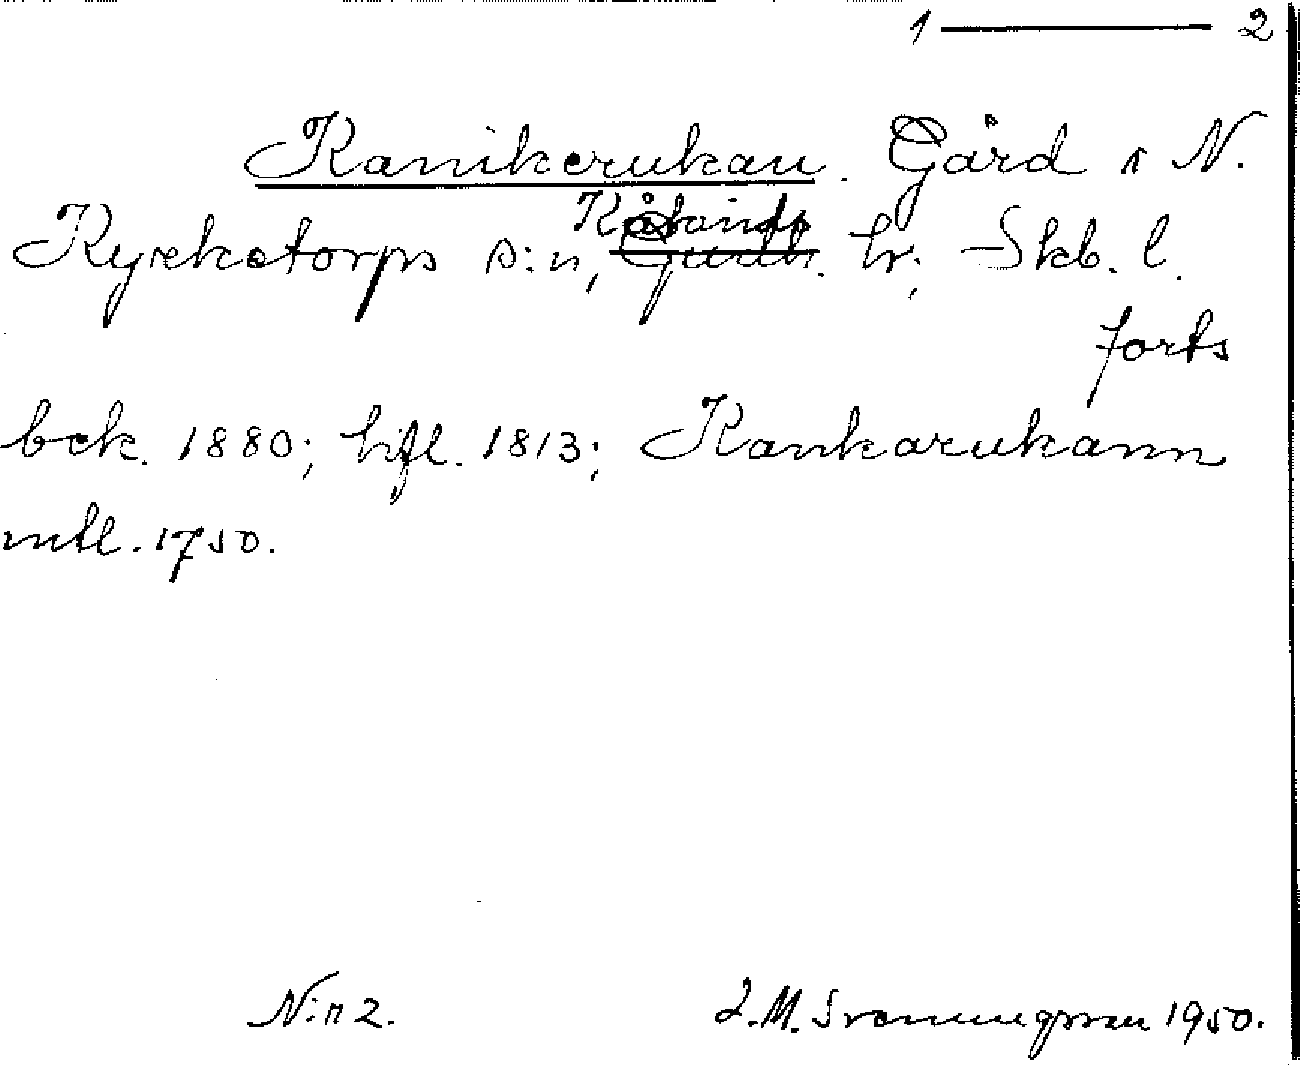 1 — 2
Kanikerukan. Gård i N.
Kåkinds
Kyrketorps s:n, Gudh. hr; Skb. l.
forts
bek. 1880; hfl. 1813; Kankarukann
mtl. 1750.
N:r 2. J. M. Svenningsson 1950.